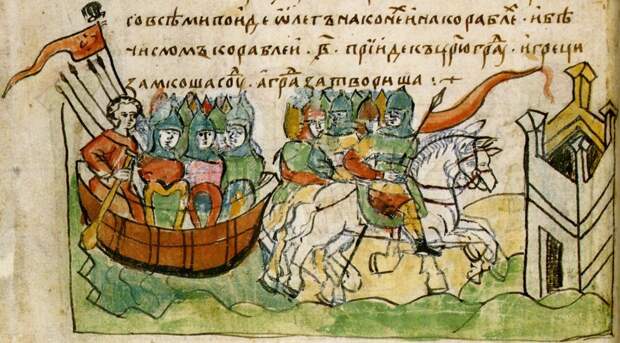 совсѣми поиде ѡлегъ на конеи и на корабле · и бѣ
числомъ кораблеи · в҃ · прїиде къ црю граⷣ · и греци
замкоша соуⷣ · а граⷣ затвориша :·+